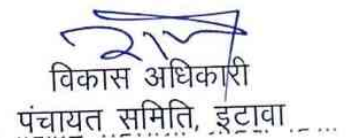 विकास अधिकारी
पंचायत समिति, इटावा